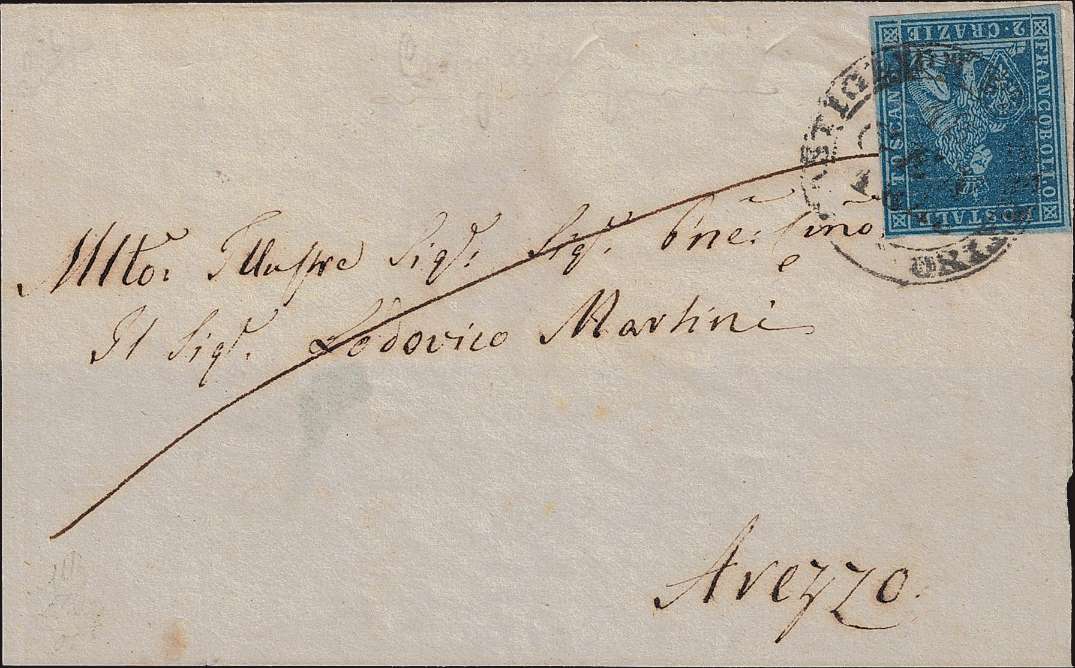 FRANCOBOLLO
POSTALE
TOSCANO
2·CRAZIE
Mlto. Illustre Sigr. Sigr.
Il Sigr. Lodovico Martini
Arezzo.